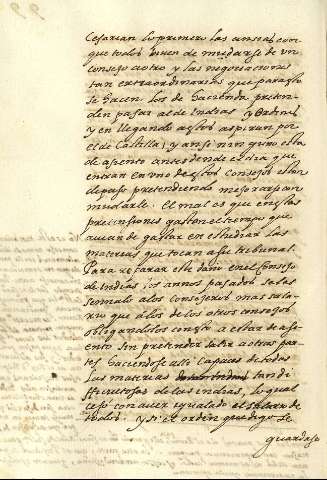 Cesarian lo primero las ansias con
que todos viuen de mudarse de un
consejo a otro y las negociaciones
tan extraordinarias que para esto
se hacen los de Hacienda preten-
den pasar al de Indias y Ordenes
y en llegando a estos aspiran por
el de Castilla, y ansi ninguno esta
de asiento antes desde el dia que
entran en vno de estos consejos estan
de paso pretendiendo mejorarse y an
mudarse. El mal es que en estas
pretensiones gastan el tiempo que
auian de gastar en estudiar las
materias que tocan a su tribunal.
Para reparar este daño en el Consejo
de Indias, los años pasados se les
señalo a los consejeros mas sala-
rio que a los de los otros consejos
obligandolos con esto a estar de asi-
ento sin pretender salir a otras par-
tes haciendose assi capaces de todas
las materias tan di
ficultosas de las indias, lo qual
ceso con auer ygualado el salar de
todos y si el orden que digo se
guardase